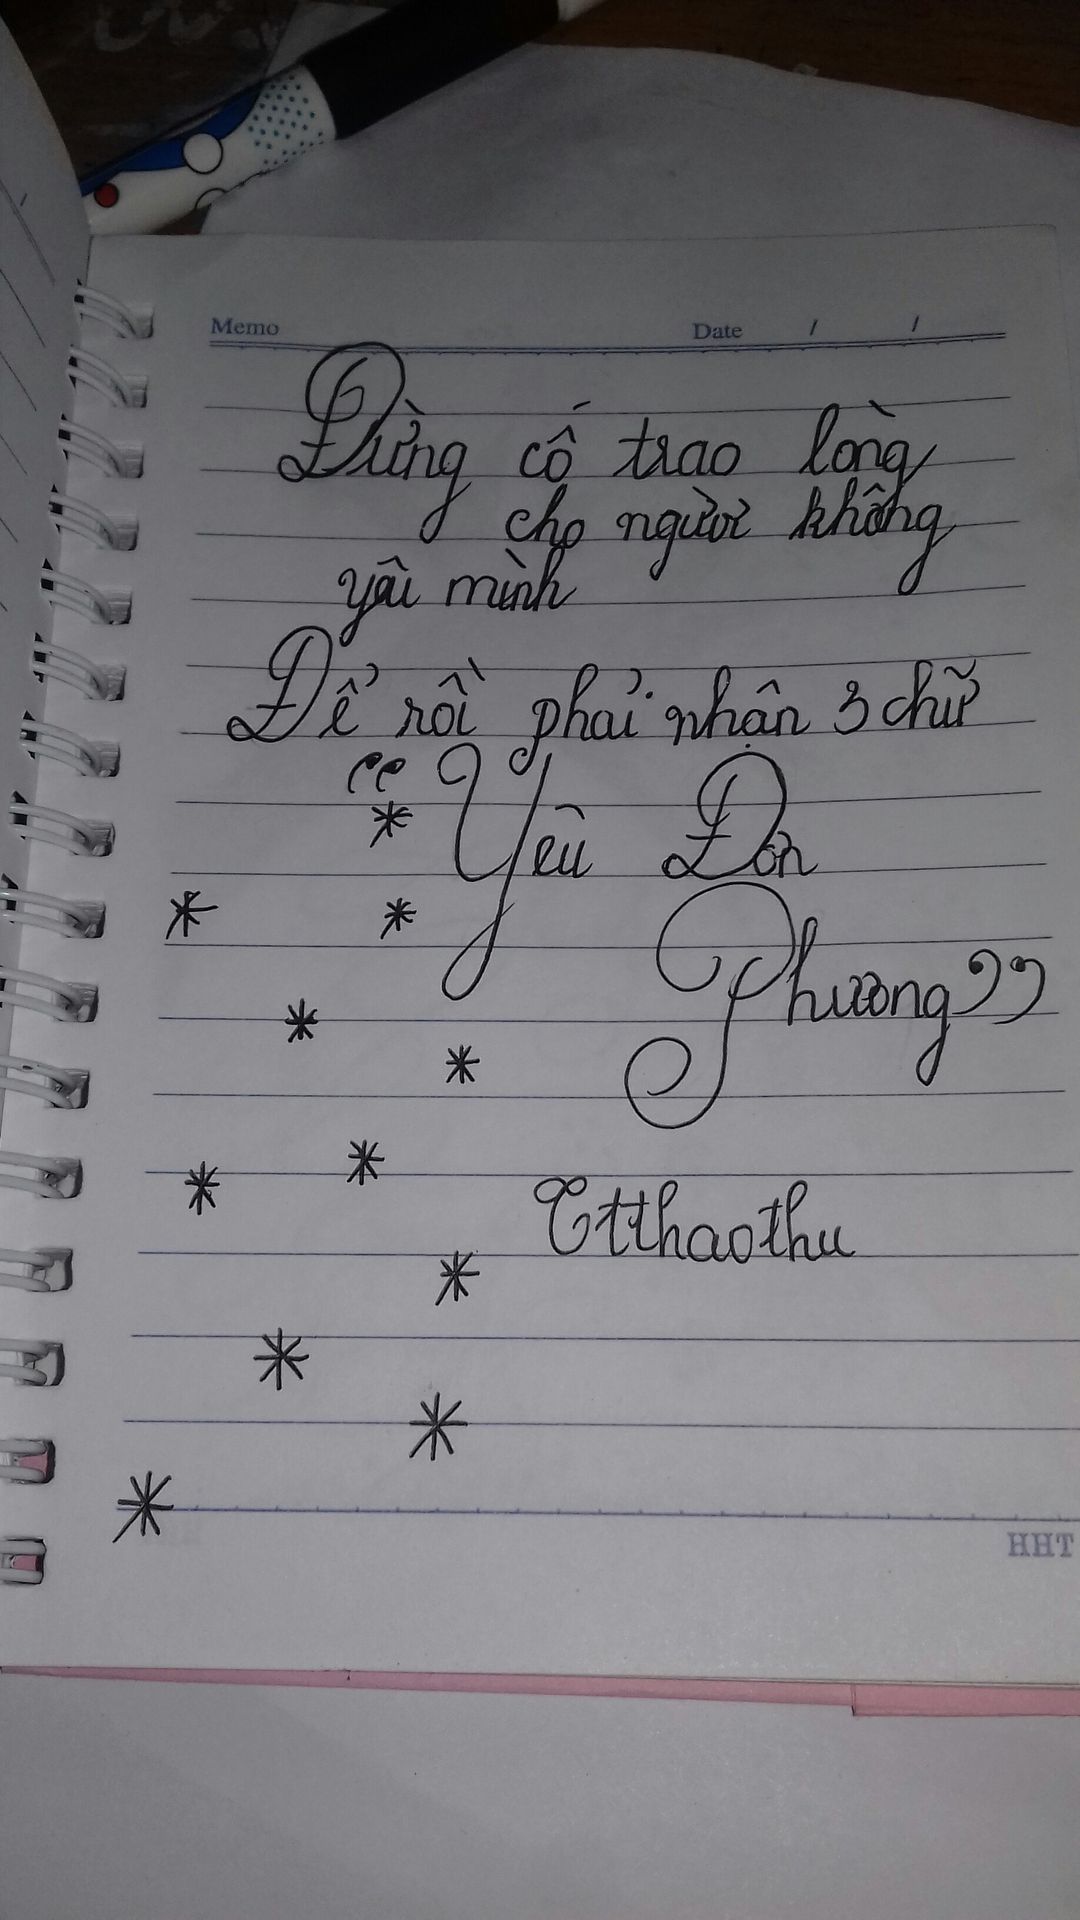 Memo Date / /
Đừng cố trao lòng
cho người không
yêu mình
Để rồi phải nhận 3 chữ
“Yêu Đơn
Phương”
Ttthaothu
HHT